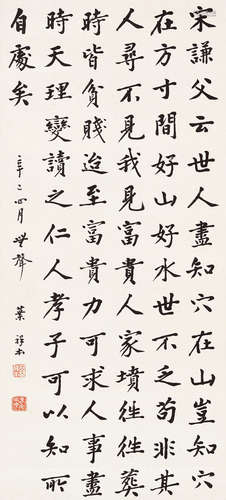 宋謙父云世人盡知穴在山豈知穴
在方寸間好山好水世不乏苟非其
人尋不見我見富貴人家墳往往葬
時皆貧賤迨至富貴力可求人事盡
時天理變讀之仁人孝子可以知所
自處矣
辛二四月 世聲
葉祥本